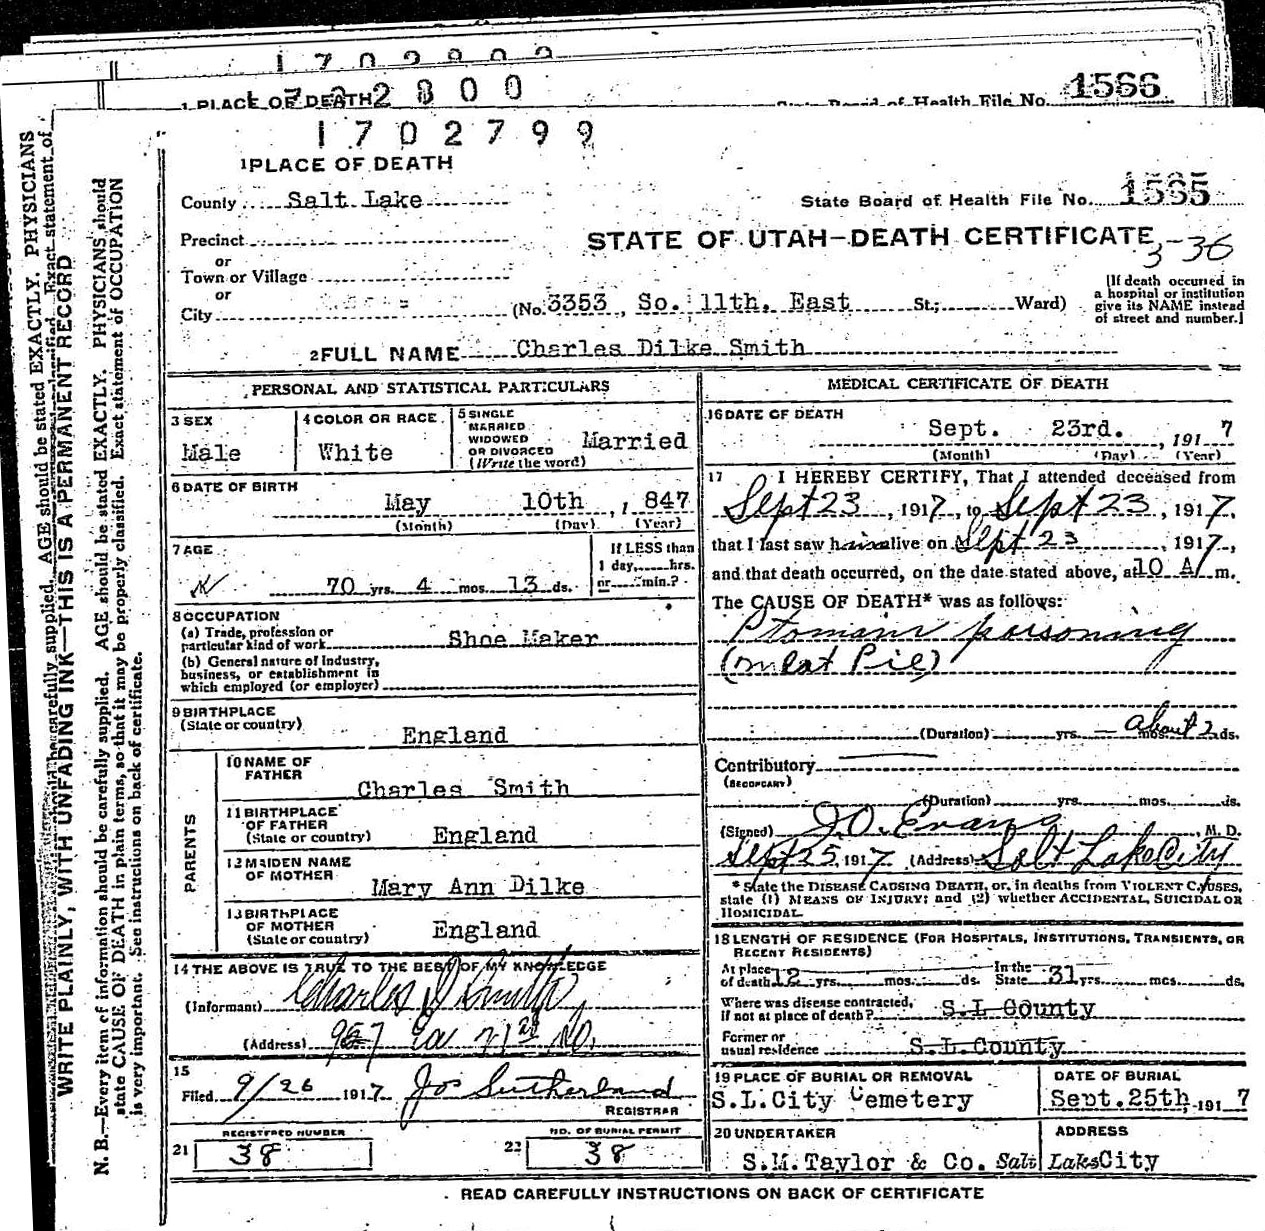 1 7 0 2 8 0 0
1 PLACE OF DEATH
State Board of Health File No. 1566
1 7 0 2 7 9 9
1 PLACE OF DEATH
County Salt Lake
State Board of Health File No. 1565
Precinct
STATE OF UTAH—DEATH CERTIFICATE
3-36
or
Town or Village
or
City
(No. 3353, So. 11th. East St.; Ward)
[If death occurred in a hospital or institution give its NAME instead of street and number.]
2 FULL NAME Charles Dilke Smith
PERSONAL AND STATISTICAL PARTICULARS
3 SEX
Male
4 COLOR OR RACE
White
5 SINGLE
MARRIED
WIDOWED
OR DIVORCED
(Write the word)
Married
6 DATE OF BIRTH
May 10th, 1847
(Month) (Day) (Year)
7 AGE
70 yrs. 4 mos. 13 ds.
If LESS than
1 day, hrs.
or min.?
8 OCCUPATION
(a) Trade, profession or
particular kind of work Shoe Maker
(b) General nature of Industry,
business, or establishment in
which employed (or employer)
9 BIRTHPLACE
(State or country)
England
PARENTS
10 NAME OF
FATHER
Charles Smith
11 BIRTHPLACE
OF FATHER
(State or country) England
12 MAIDEN NAME
OF MOTHER
Mary Ann Dilke
13 BIRTHPLACE
OF MOTHER
(State or country) England
14 THE ABOVE IS TRUE TO THE BEST OF MY KNOWLEDGE
(Informant) Charles D Smith
(Address) 957 Ea 21st So.
15
Filed 9/26 1917 Jos Sutherland
REGISTRAR
21 REGISTERED NUMBER
38
22 NO. OF BURIAL PERMIT
38
MEDICAL CERTIFICATE OF DEATH
16 DATE OF DEATH
Sept. 23rd. , 1917
(Month) (Day) (Year)
17 I HEREBY CERTIFY, That I attended deceased from
Sept 23, 1917, to Sept 23, 1917,
that I last saw him alive on Sept 23, 1917,
and that death occurred, on the date stated above, at 10 A m.
The CAUSE OF DEATH* was as follows:
Ptomain poisoning
(meat Pie)
(Duration) yrs. — mos. about 2 ds.
Contributory
(SECONDARY)
(Duration) yrs. mos. ds.
(Signed) J.O. Evans, M. D.
Sept 25 1917 (Address) Salt Lake City
* State the DISEASE CAUSING DEATH, or, in deaths from VIOLENT CAUSES,
state (1) MEANS OF INJURY; and (2) whether ACCIDENTAL, SUICIDAL OR
HOMICIDAL
18 LENGTH OF RESIDENCE (FOR HOSPITALS, INSTITUTIONS, TRANSIENTS, OR
RECENT RESIDENTS)
At place of death 12 yrs. mos. ds. In the State 31 yrs. mos. ds.
Where was disease contracted,
if not at place of death? S.L County
Former or
usual residence S.L.County
19 PLACE OF BURIAL OR REMOVAL
S.L.City Cemetery
DATE OF BURIAL
Sept.25th, 1917
20 UNDERTAKER
S.M.Taylor & Co.
ADDRESS
Salt Lake City
READ CAREFULLY INSTRUCTIONS ON BACK OF CERTIFICATE
WRITE PLAINLY, WITH UNFADING INK—THIS IS A PERMANENT RECORD
N. B.—Every item of information should be carefully supplied. AGE should be stated EXACTLY. PHYSICIANS should
state CAUSE OF DEATH in plain terms, so that it may be properly classified. Exact statement of OCCUPATION
is very important. See instructions on back of certificate.